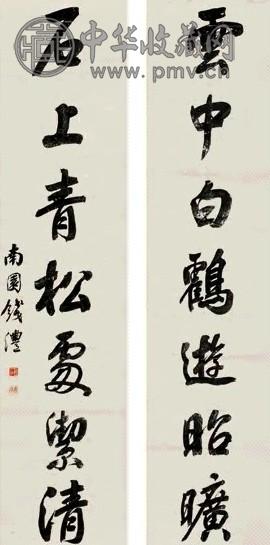 雲中白鶴遊昭曠
石上青松處潔清
南園錢灃
中华收藏网
www.pmv.cn